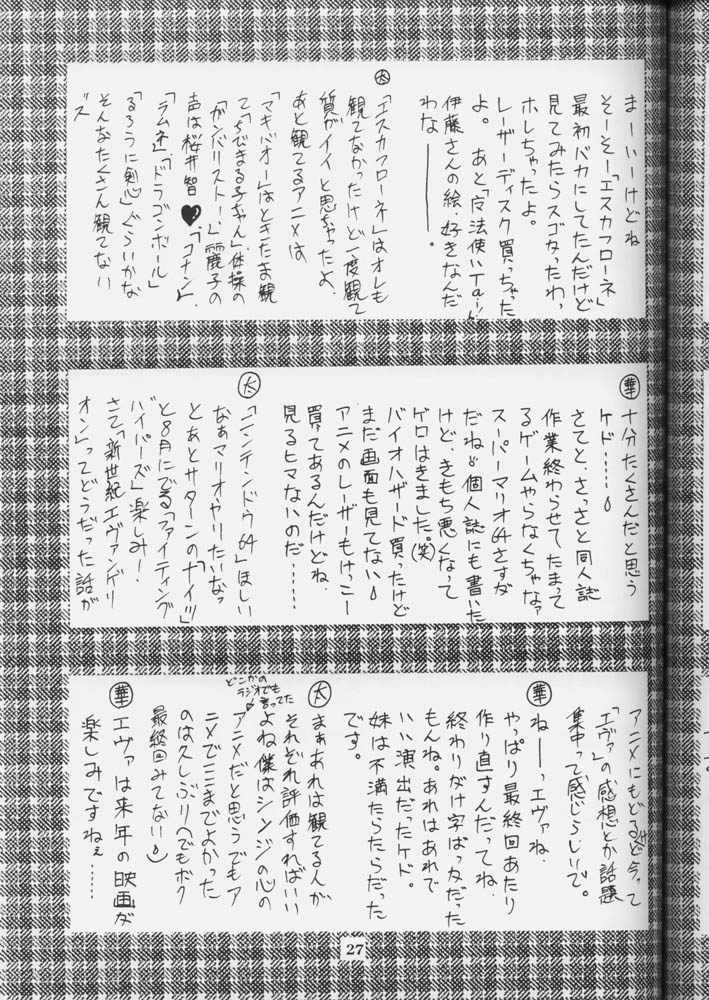 まーいーけどね
そーそー「エスカフローネ」
最初バカにしてたんだけど
見てみたらスゴかったわっ
ホレちゃったよ。
レーザーディスク買っちゃった
よ。あと「魔法使いTai!」
伊藤さんの絵、好きなんだ
わなーーー。
大
「エスカフローネ」はオレも
観てなかったけど一度観て
質がイイと思ちゃったよ、
あと観てるアニメは
「マキバオー」はときたま観
て、「ちびまる子ちゃん」、体操の
「ガンバリスト!」麗子の
声は桜井智♥「コナン」、
「ラムネ」「ドラゴンボール」
「るろうに剣心」ぐらいかな
そんなたくさん観てない
ズ
華
十分たくさんだと思う
ケド……
さてと、さっさと同人誌
作業終わらせて、たまって
るゲームやらなくちゃなっ
スーパーマリオ64さすが
だね 個人誌にも書いた
けど、きもち悪くなって
ゲロはきました。(笑)
バイオハザード買ったけど
まだ画面も見てない
アニメのレーザーもけっこー
買ってあるんだけどね、
見るヒマないのだ……
大
「ニンテンドウ64」ほしい
なぁマリオやりたいなっ
とあとサターンの「ナイツ」
と8月にでる「ファイティング
バイパーズ」楽しみー!
さて「新世紀エヴァンゲリ
オン」ってどうだった話が
アニメにもどるけど今って
「エヴァ」の感想とか話題
集中って感じらしいで。
華
ねーーっエヴァね、
やっぱり最終回あたり
作り直すんだってね、
終わりだけ字ばっかだった
もんね。あれはあれで
いい演出だったケド。
妹は不満たらたらだった
です。
大
まぁあれは観てる人が
それぞれ評価すればいい
よね僕はシンジの心の
どこかの
ラジオでも
言ってた
アニメだと思うでもア
ニメでここまでよかった
のは久しぶりへでもボク
最終回みてない
華
エヴァは来年の映画が
楽しみですねぇ……
27